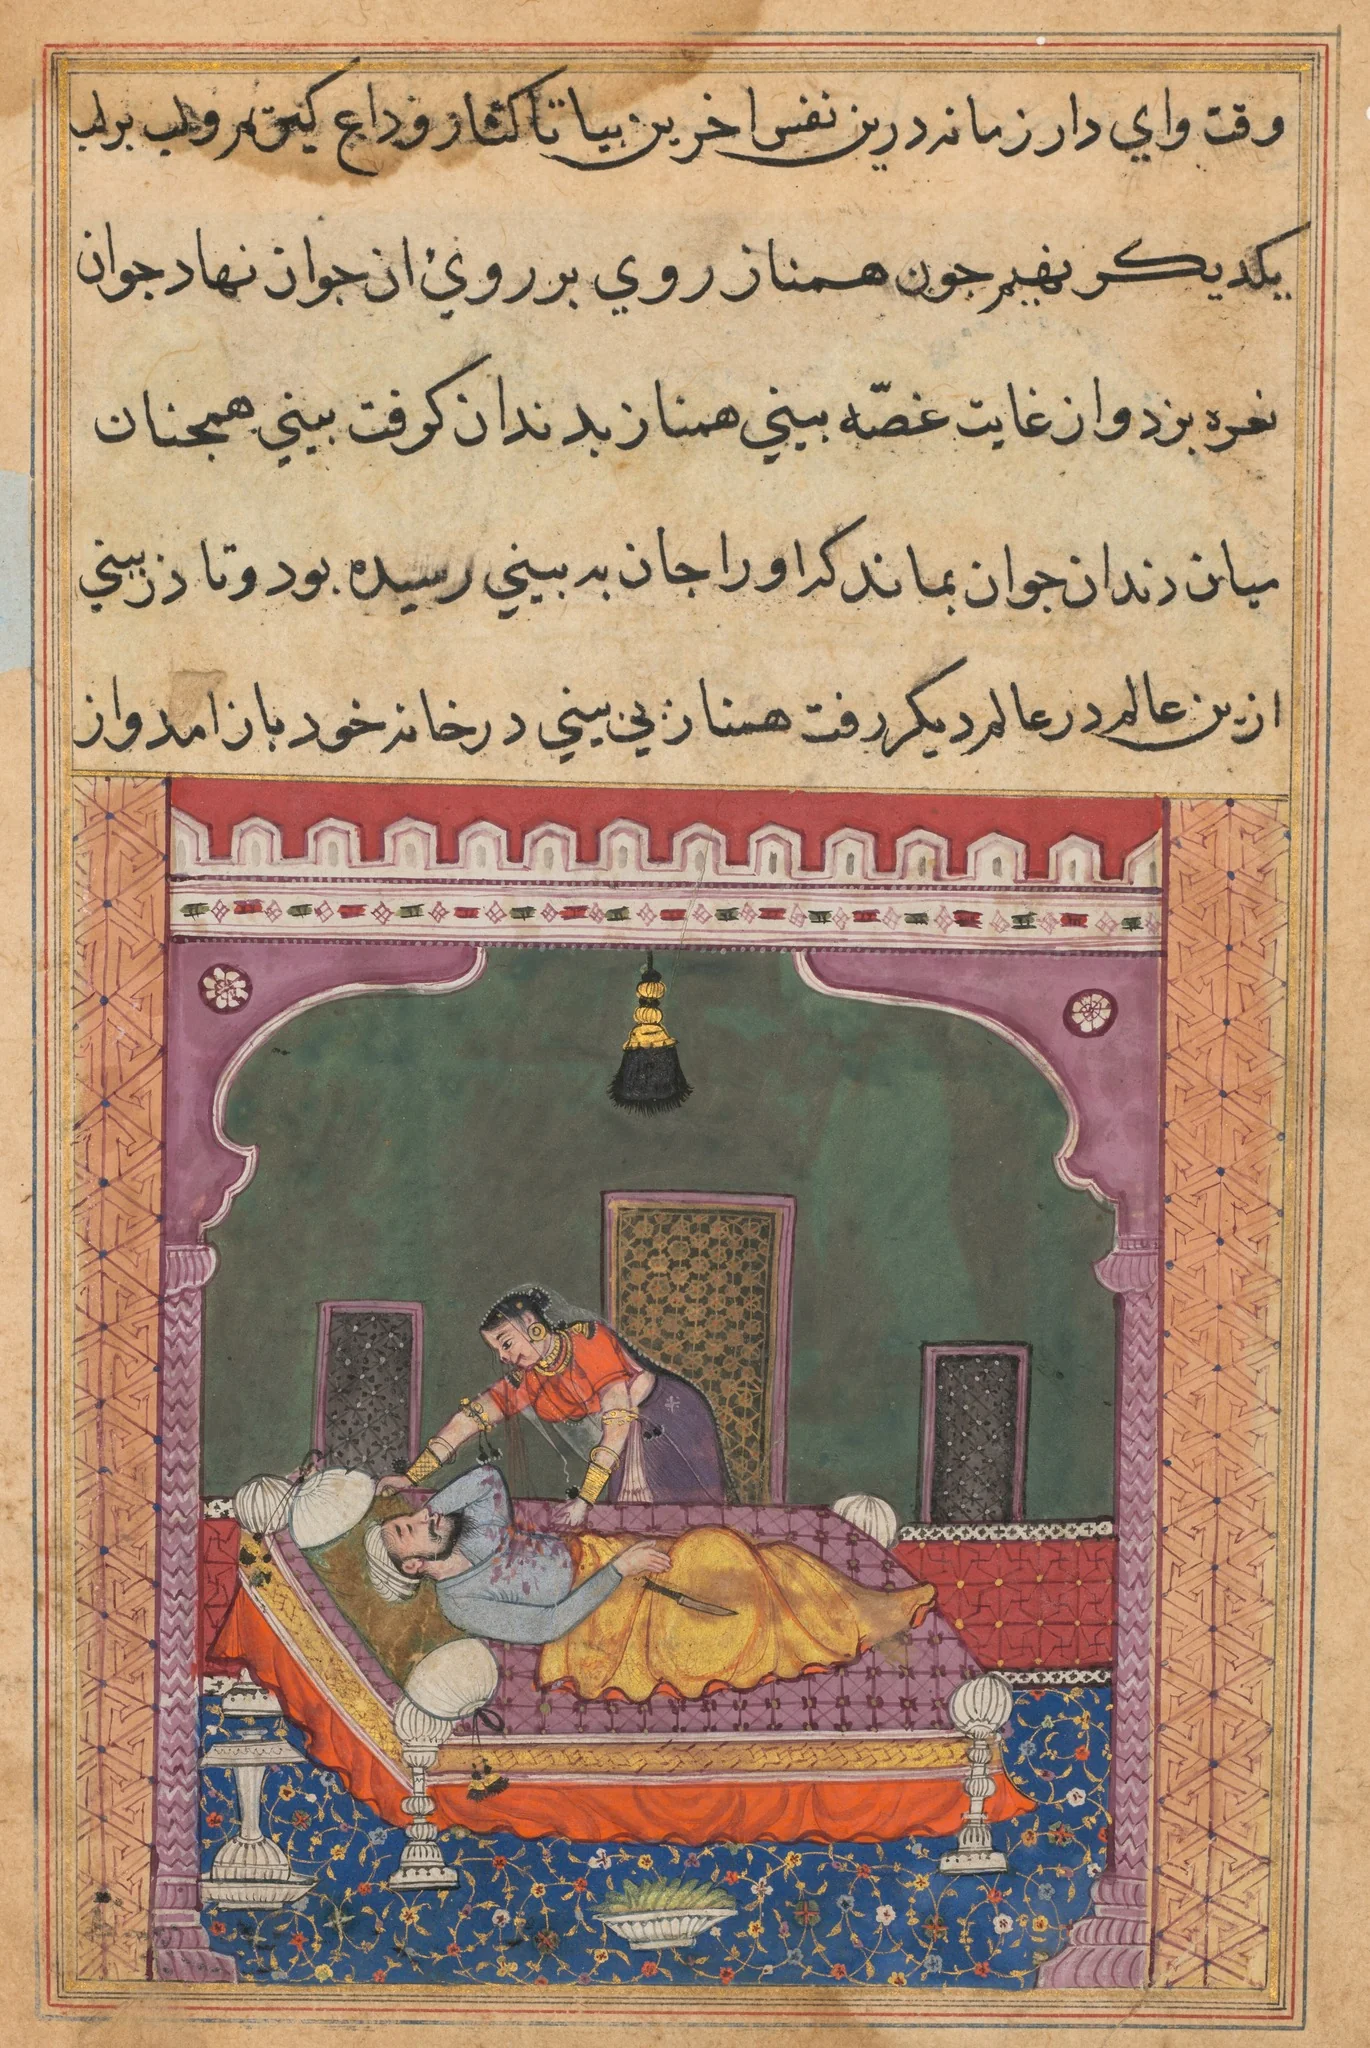 وقت واي دار زمانه درین نفس اخرین بیا تا کنار وداع کنیم و لب بر لب
یکدیکر نهیم جون همناز روي بر روئ ان جوان نهاد جوان
نعره بزد و از غایت غصّه بیني همناز بدندان کرفت بیني همجنان
میان دندان جوان بماند که او را جان به بیني رسیده بود و تا دزبیني
ازین عالم در عالم دیکر رفت همناز بي بیني در خانه خود باز امد و از